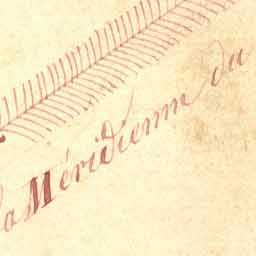 la Méridienne du